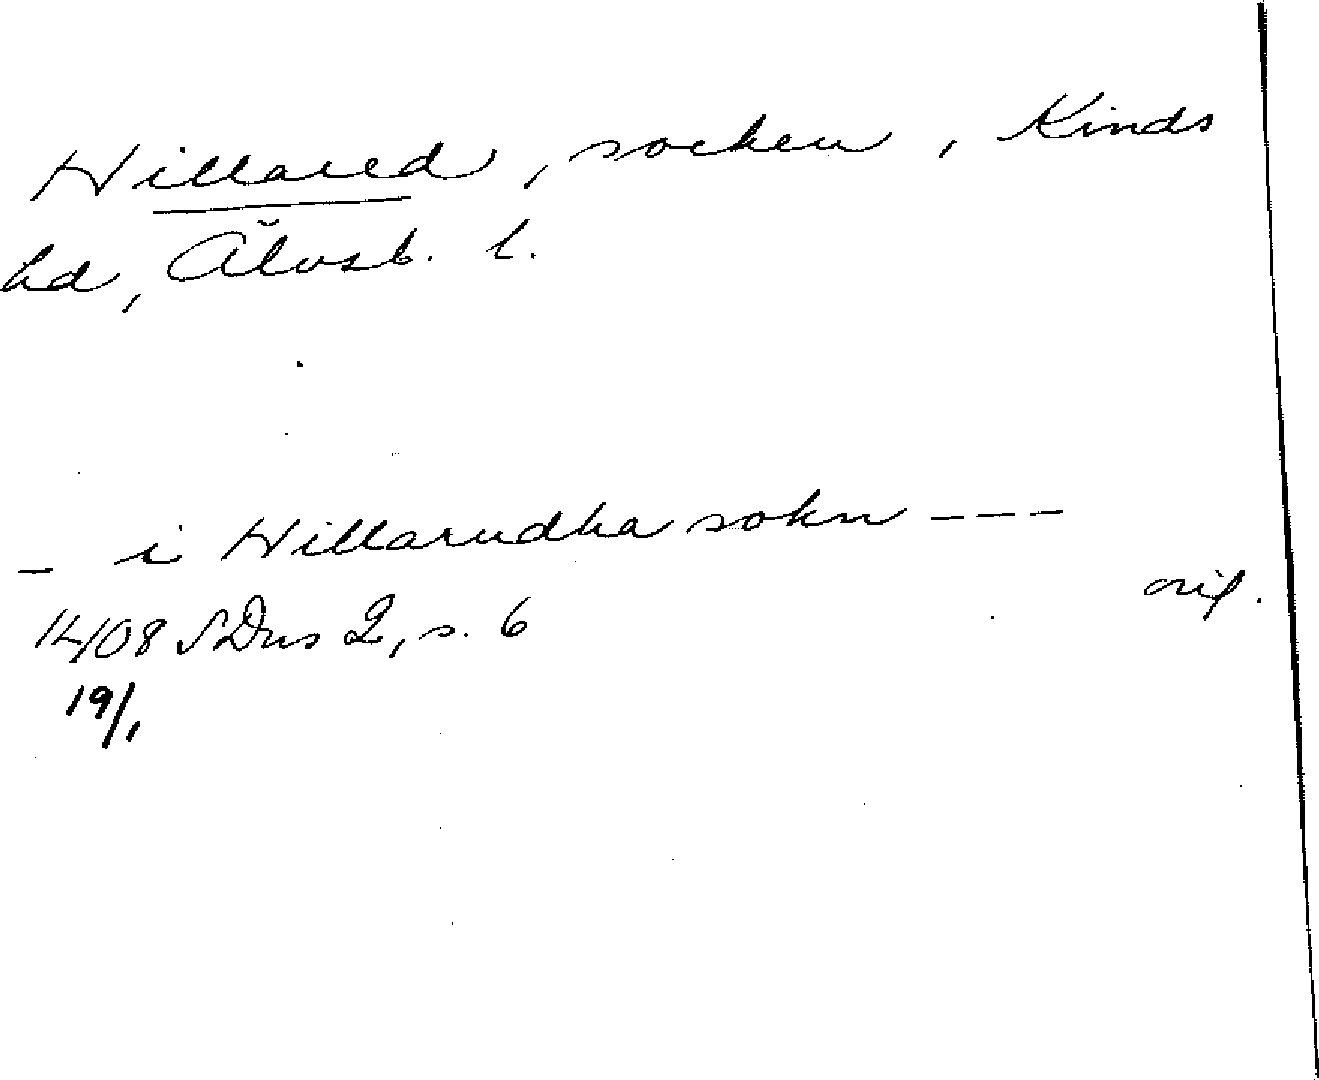 Hillared, socken, Kinds
hd, Älvsb. l.
– i Hillarudha sokn ---
orig.
1408 SDns 2, s. 6
19/1